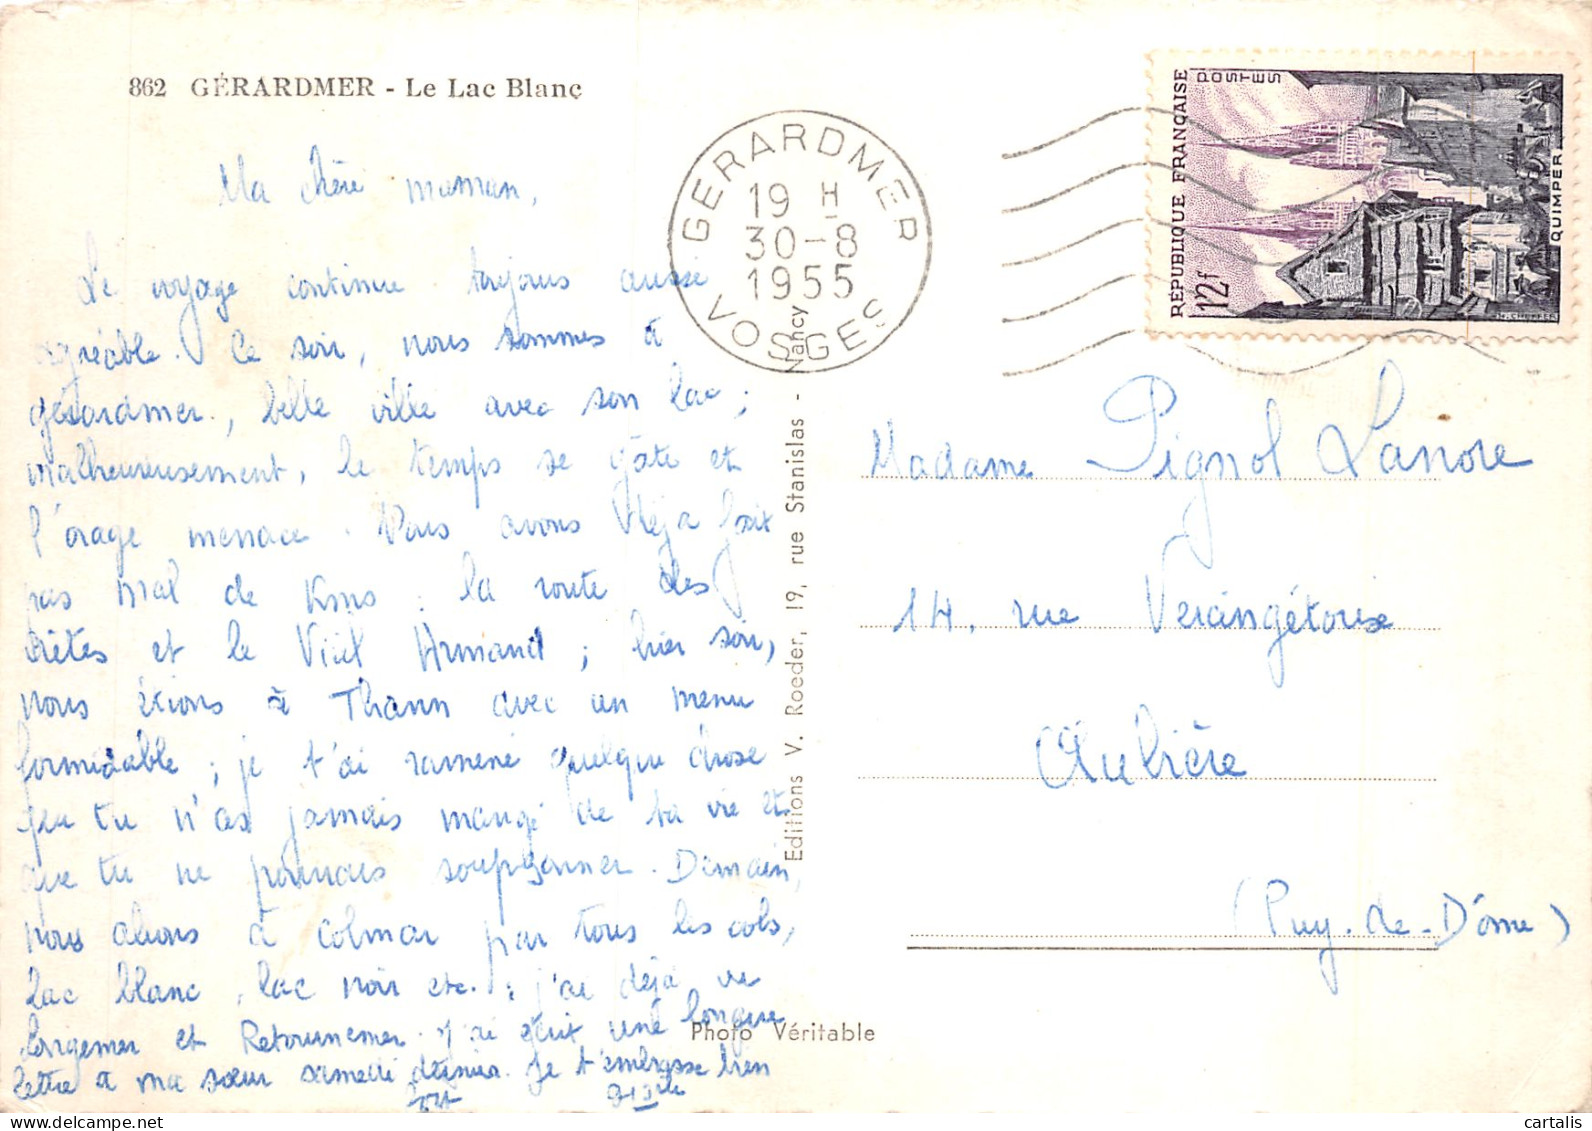 862 GÉRARDMER - Le Lac Blanc
Ma chère maman,
Le voyage continue toujours aussi
agréable. Ce soir, nous sommes à
gérardmer, belle ville avec son lac ;
malheureusement, le temps se gâte et
l'orage menace. Nous avons déjà fait
pas mal de Kms : la route des
crêtes et le Vieil Armand ; hier soir,
nous étions à Thann avec un menu
formidable ; je t'ai ramené quelque chose
que tu n'as jamais mangé de ta vie et
que tu ne pourrais soupçonner. Demain,
nous allons à Colmar par tous les cols,
Lac blanc, lac noir etc. : j'ai déjà vu
Longemer et Retournemer. J'ai écrit une longue
lettre à ma sœur samedi dernier. Je t'embrasse bien
fort
GERARDMER
19 H
30-8
1955
VOSGES
RÉPUBLIQUE FRANÇAISE
POSTES
12f
QUIMPER
Editions V. Roeder, 19, rue Stanislas - Nancy
Madame Pignol Lanore
14, rue Vercingétorix
Aubière
(Puy-de-Dôme)
Photo Véritable
cartalis
www.delcampe.net